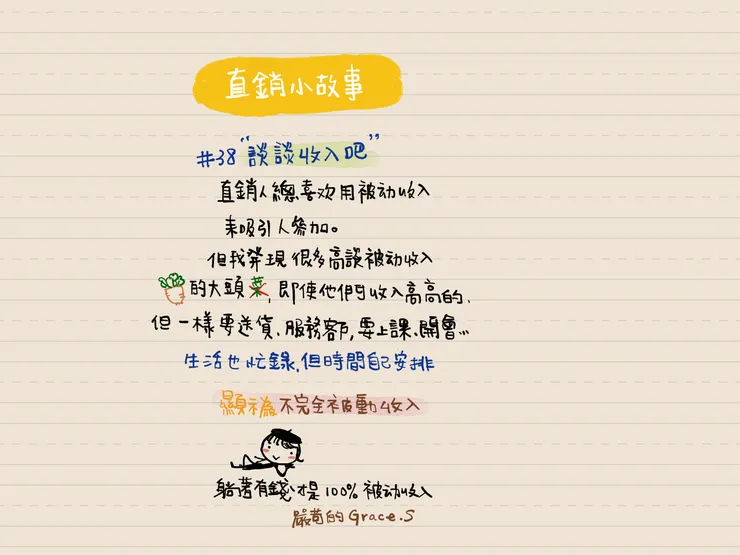 直銷小故事
#38 "談談收入吧"
直銷人總喜欢用被动收入
来吸引人參加。
但我發現很多高談被动收入
的大頭菜,即使他們收入高高的,
但一樣要送貨、服務客戶,要上課、開會...
生活也忙錄,但時間自己安排
顯示為不完全被動收入
躺著有錢才是100%被动收入
嚴苛的Grace.S